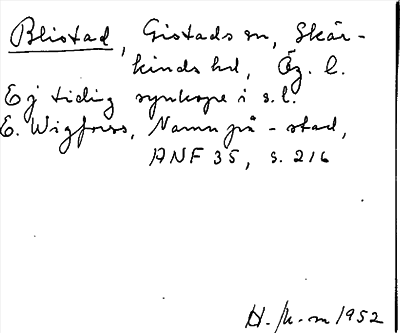 Blistad, Gistads sn, Skär-
kinds hd, Ög. l.
Ej tidig synkope i s.l.
E. Wigforss, Namn på -stad,
ANF 35, s. 216
H. M-m 1952